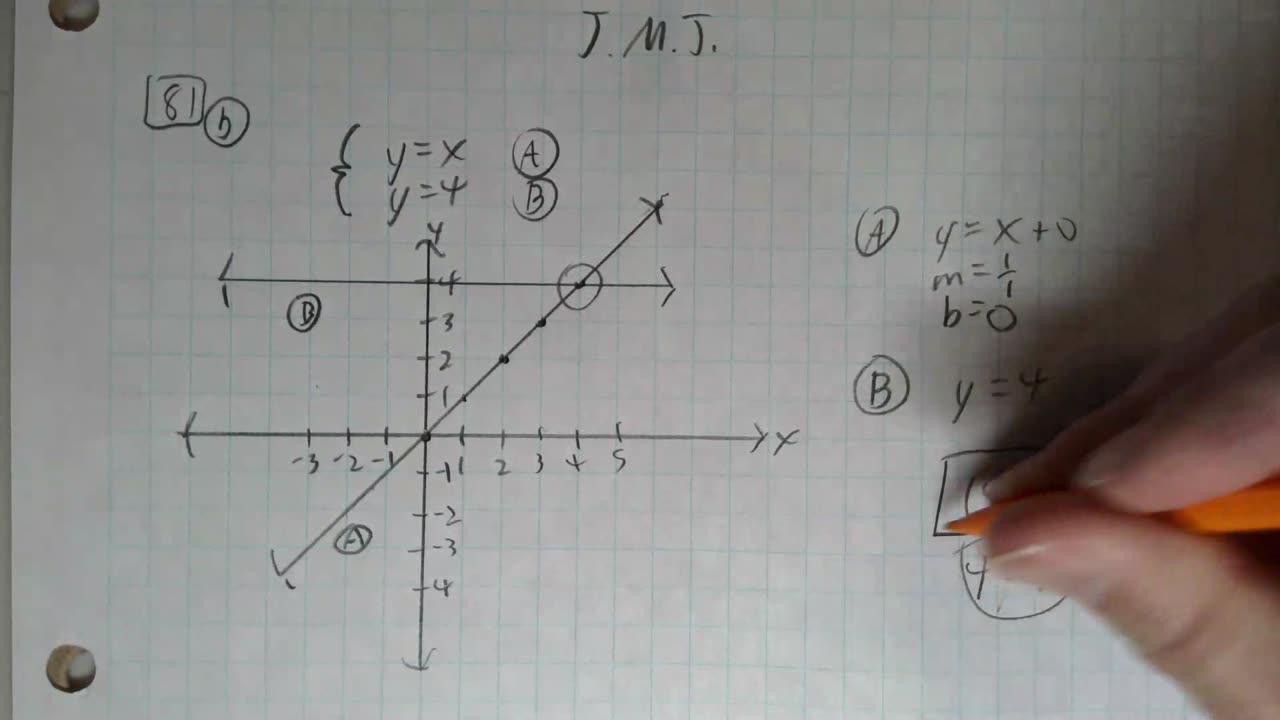 J.M.J.
81 b
y = x A
y = 4 B
y
4
B
3
2
1
-3 -2 -1 1 2 3 4 5 x
-1
-2
A
-3
4
A y = x + 0
m = 1/1
b = 0
B y = 4
4